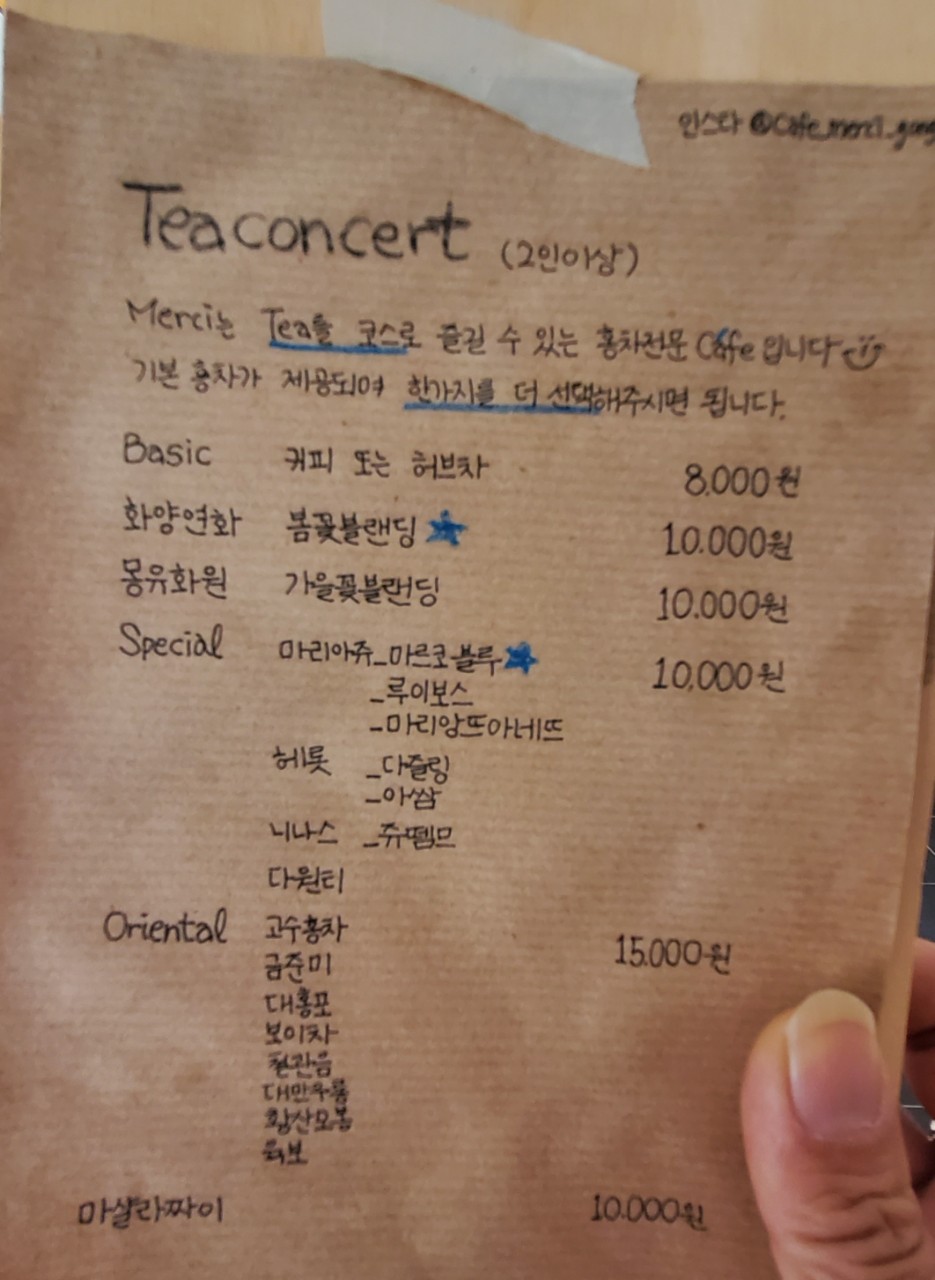 인스타 @Cafe_merci_gong
Teaconcert (2인이상)
Merci는 Tea를 코스로 즐길 수 있는 홍차전문 Cafe입니다
기본 홍차가 제공되며 한가지를 더 선택해주시면 됩니다.
Basic 커피 또는 허브차 8.000원
화양연화 봄꽃블랜딩 10.000원
몽유화원 가을꽃블랜딩 10.000원
Special 마리아쥬_마르코블루 10,000원
_루이보스
_마리앙뜨아네뜨
헤롯 _다즐링
_아쌈
니나스 _쥬뗌므
다원티
Oriental 고수홍차 15.000원
금준미
대홍포
보이차
철관음
대만우롱
황산모봉
육보
마살라짜이 10.000원